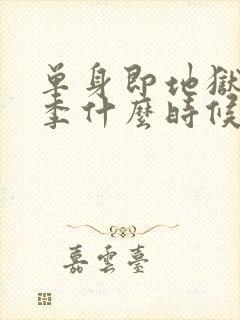 單身即地獄
季什麼時候
嘉雲臺